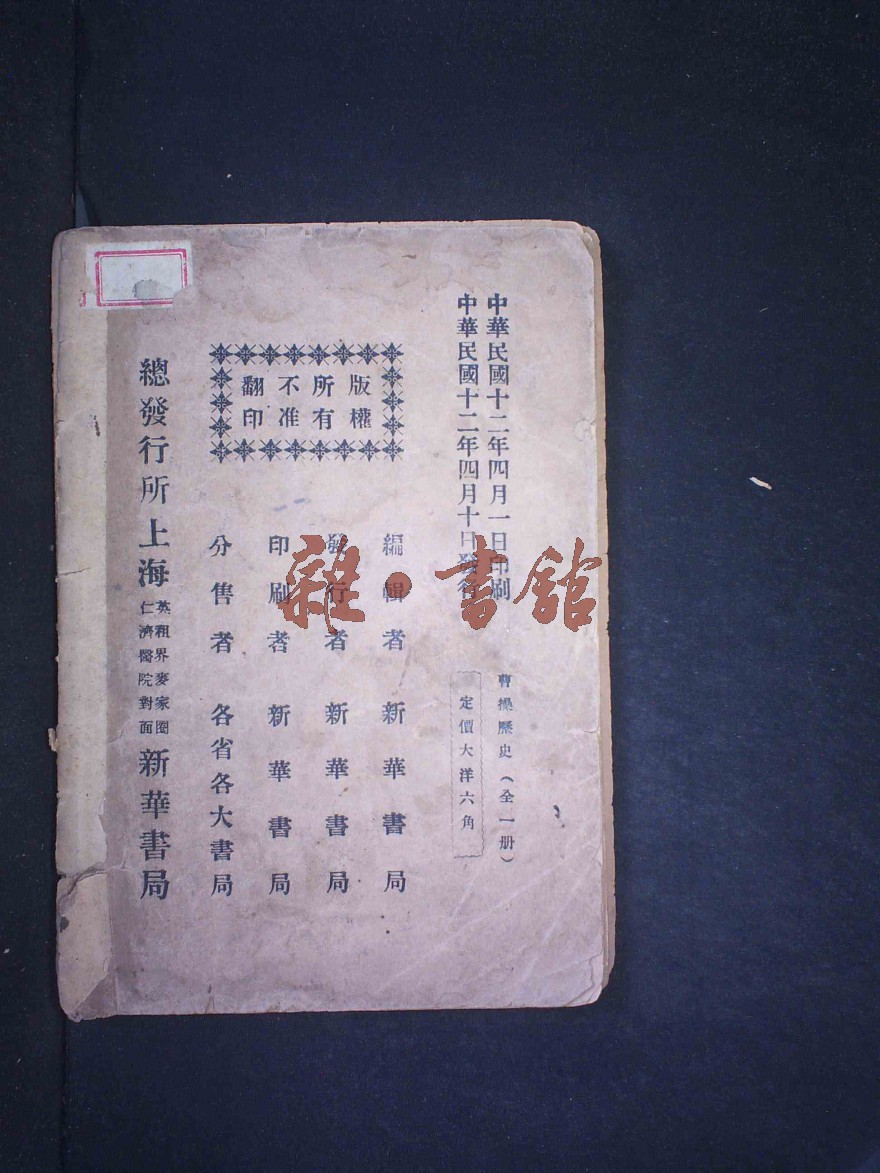 中華民國十二年四月一日印刷
中華民國十二年四月十日發行
曹操歷史（全一册）
定價大洋六角
版權
所有
不准
翻印
編輯者 新華書局
發行者 新華書局
印刷者 新華書局
分售者 各省各大書局
總發行所上海英租界麥家圈仁濟醫院對面新華書局
雜·書館